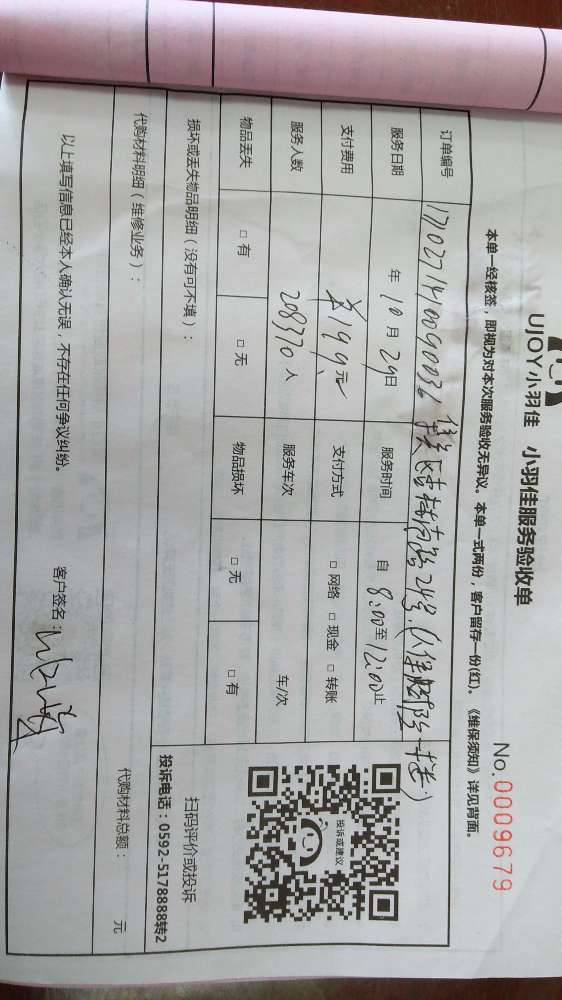 UJOY小羽佳 小羽佳服务验收单
No.0009679
本单一经核签，即视为对本次服务验收无异议。本单一式两份，客户留存一份(红)。《维保须知》详见背面。
订单编号
服务日期 年 10 月 29 日 服务时间 自 8:00 至 12:00 止
支付费用 199元 支付方式 □ 网络 □ 现金 □ 转账
服务人数 208370 人 服务车次 车/次
物品丢失 □ 有 □ 无 物品损坏 □ 无 □ 有
投诉或建议
扫码评价或投诉
投诉电话：0592-5178888转2
损坏或丢失物品明细（没有可不填）：
代购材料明细（维修业务）：
代购材料总额： 元
以上填写信息已经本人确认无误，不存在任何争议纠纷。
客户签名：